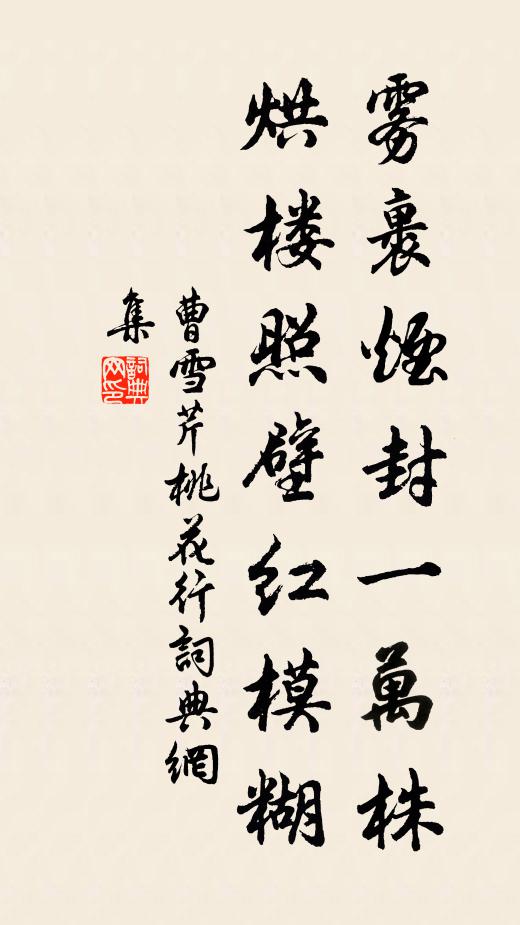 雾裹煙封一萬株
烘楼照壁红模糊
曹雪芹桃花行詞典網
集
詞典
网印